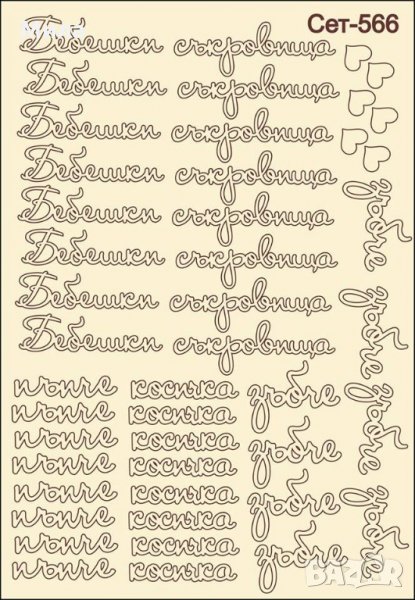 Сет-566
Бебешки съкровища
Бебешки съкровища
Бебешки съкровища
Бебешки съкровища
Бебешки съкровища
Бебешки съкровища
Бебешки съкровища
Бебешки съкровища
зъбче
зъбче
зъбче
зъбче
пъпче косичка зъбче
пъпче косичка
пъпче косичка зъбче
пъпче косичка
пъпче косичка зъбче
пъпче косичка
пъпче косичка зъбче
пъпче косичка
БАЗАР